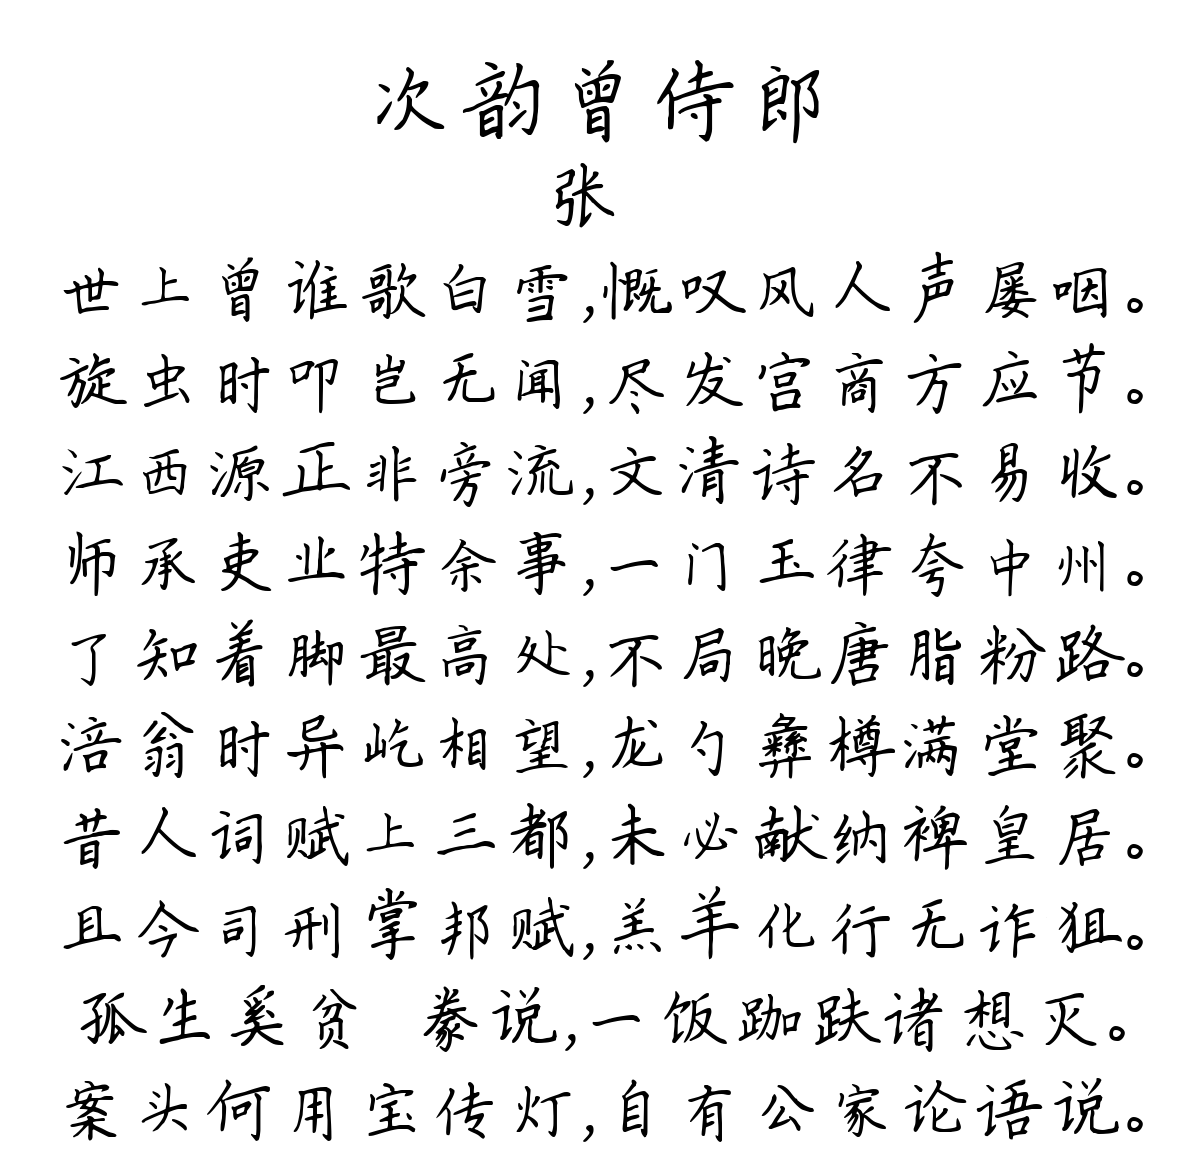 次韵曾侍郎
张
世上曾谁歌白雪,慨叹风人声屡咽。
旋虫时叩岂无闻,尽发宫商方应节。
江西源正非旁流,文清诗名不易收。
师承吏业特余事,一门玉律夸中州。
了知着脚最高处,不局晚唐脂粉路。
涪翁时异屹相望,龙勺彝樽满堂聚。
昔人词赋上三都,未必献纳裨皇居。
且今司刑掌邦赋,羔羊化行无诈狙。
孤生奚贫 豢说,一饭跏趺诸想灭。
案头何用宝传灯,自有公家论语说。